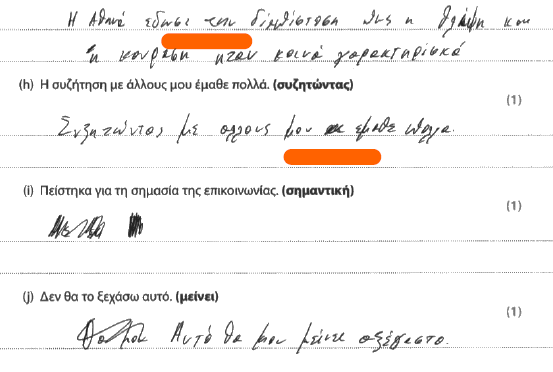 Η Αθηνά έδωσε την διαπίστωση πως η θλίψη και
η κούραση ήταν κοινά χαρακτηρισκά
(h) Η συζήτηση με άλλους μου έμαθε πολλά. (συζητώντας)
(1)
Συζητώντας με αλλους μου εμαθε πολλα.
(i) Πείστηκα για τη σημασία της επικοινωνίας. (σημαντική)
(1)
(j) Δεν θα το ξεχάσω αυτό. (μείνει)
(1)
Αυτό θα μου μείνει αξέχαστο.